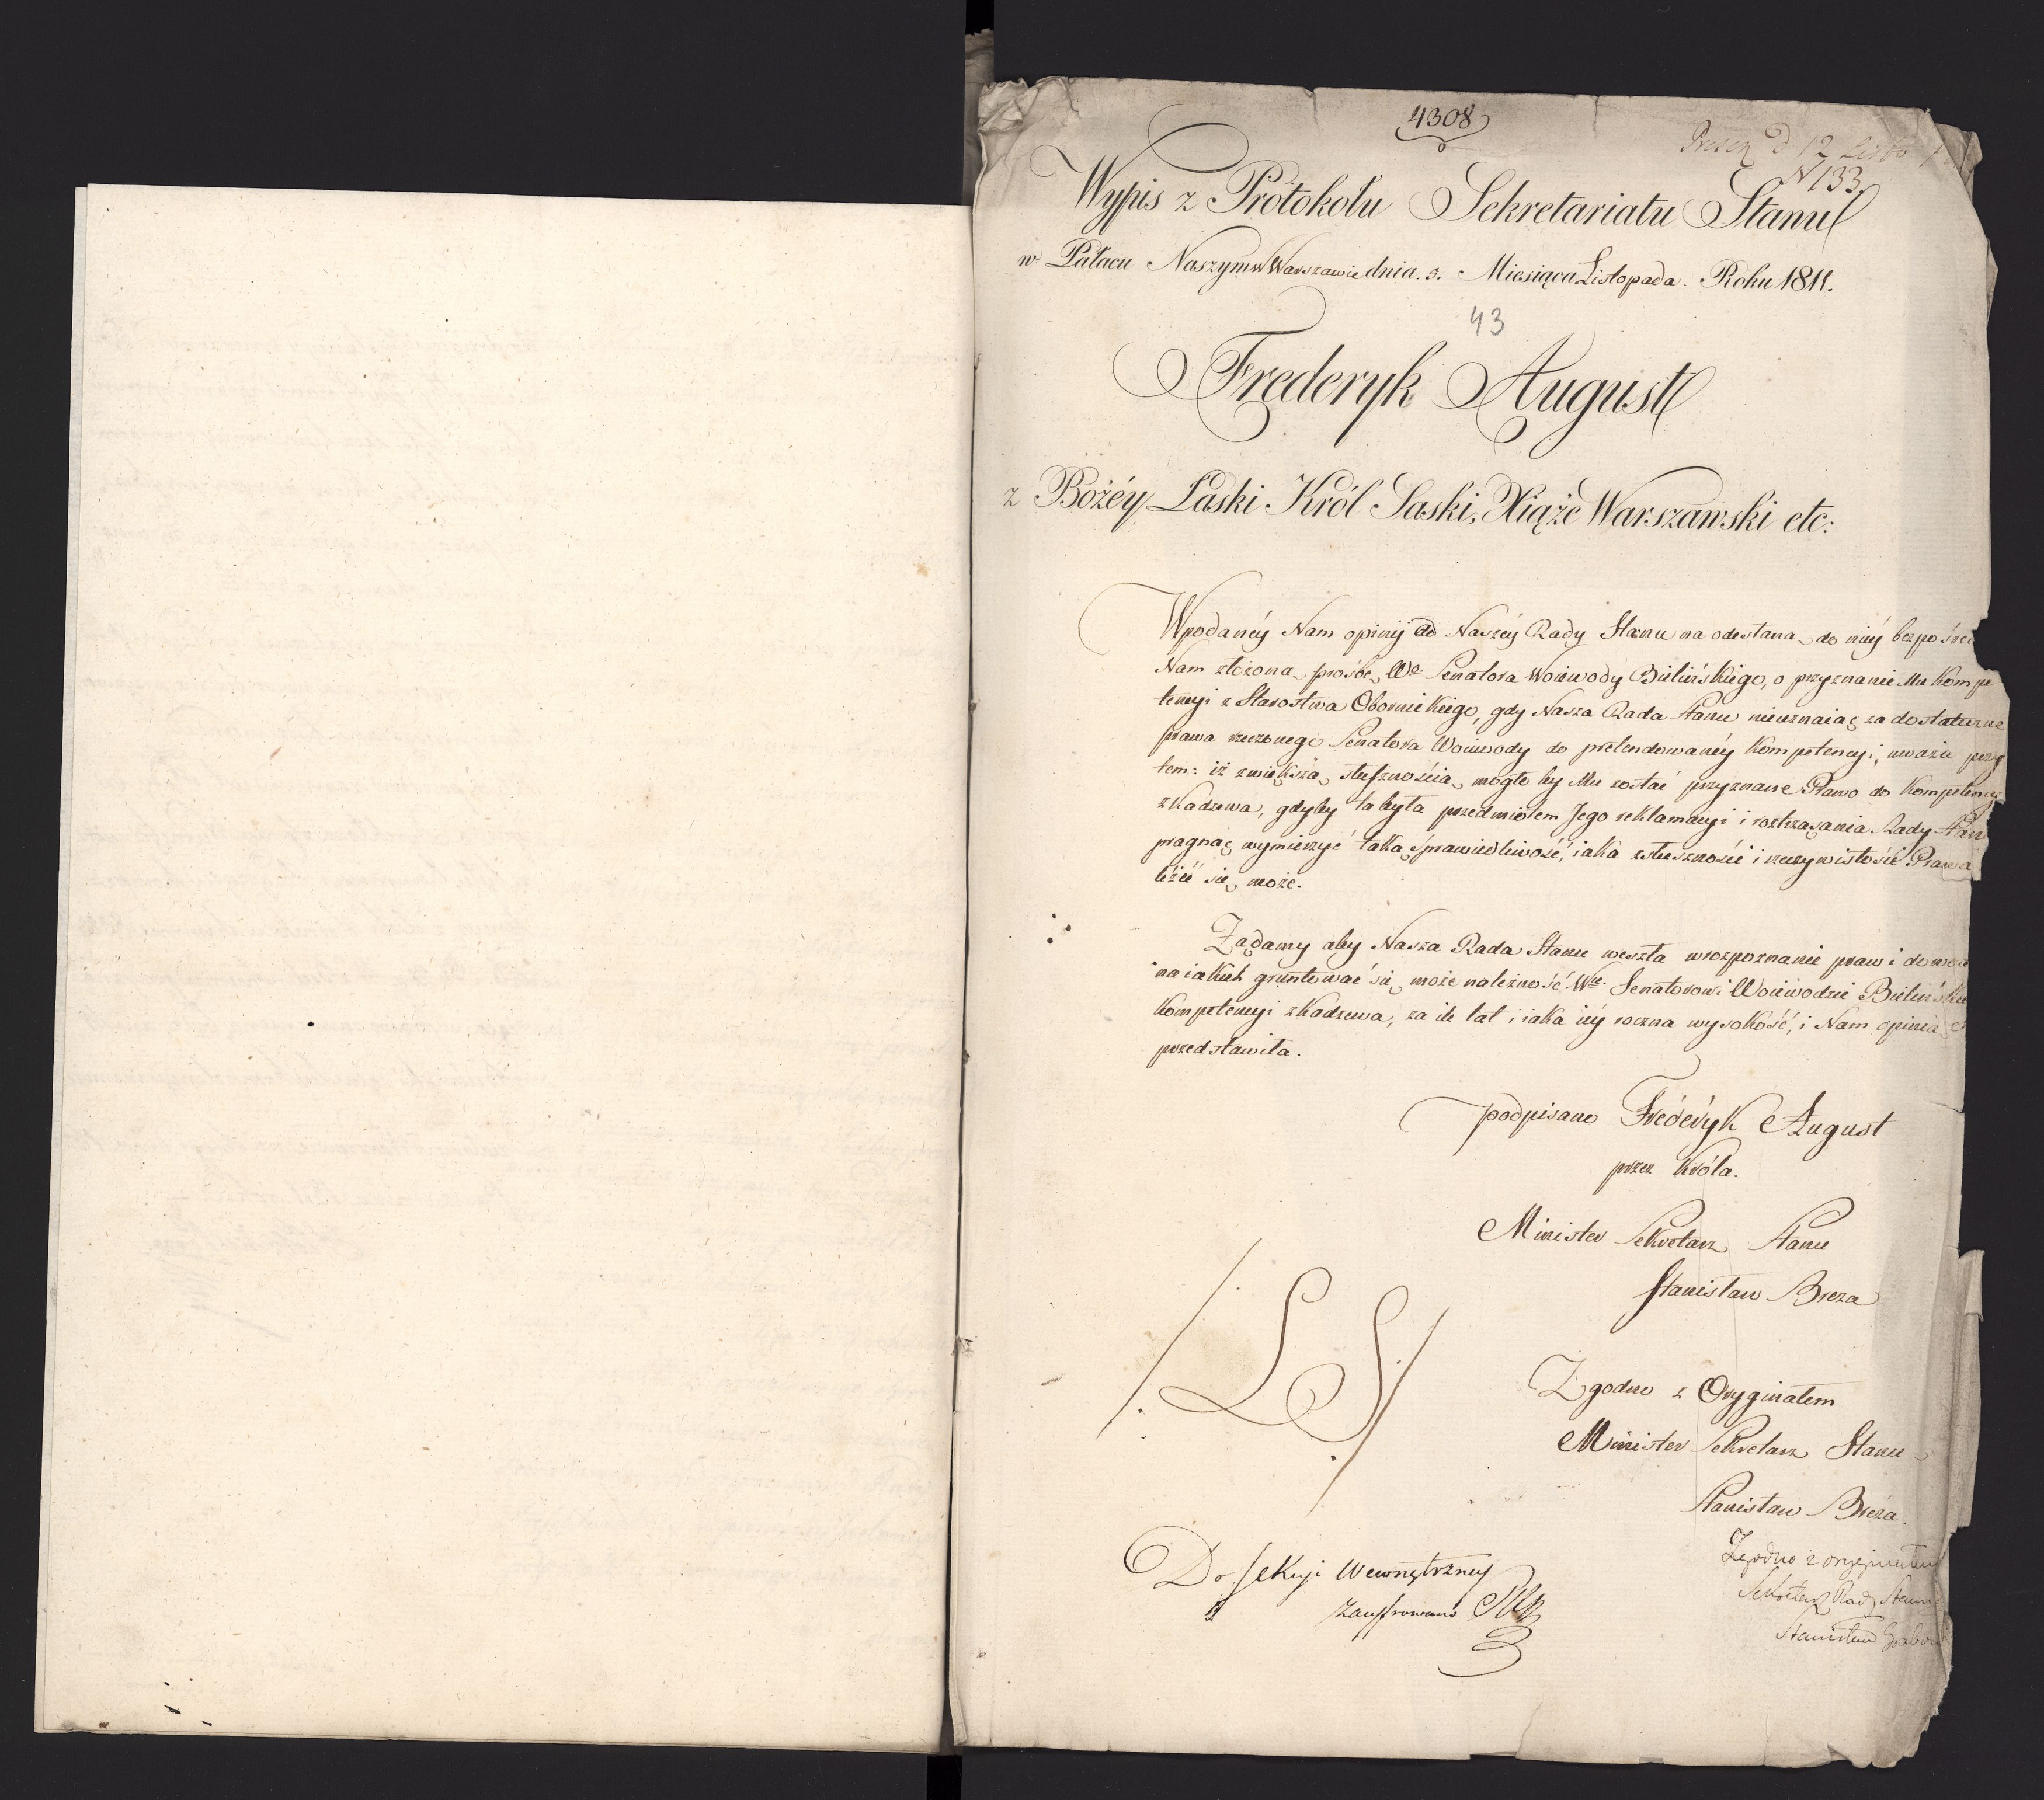 4308
Presen d 12 Listo
N 133
Wypis z Protokołu Sekretariatu Stanu
w Pałacu Naszym w Warszawie dnia. 5. Miesiąca Listopada. Roku 1811.
43
Frederyk August
z Bożéy Łaski Król Saski, Xiąże Warszawski etc:
W podanéy Nam opinij od Naszéy Rady Stanu na odesłaną do niéy bezpośred
Nam złożoną prośbę We Senatora Woiewody Bielińskiego, o przyznanie Mu Kompe
tencyi z Starostwa Obornickiego, gdy Nasza Rada Stanu nieuznaiąc za dostateczne
prawa rzeczonego Senatora Woiewody do pretendowanéy Kompetencyi, uważa przy
tem: iż zwiększą słusznością mogło by Mu zostać przyznane Prawo do Kompetency
z Kadzewa, gdyby ta była przedmiotem Jego reklamacyi i roztrząsania Rady Stanu
pragnąc wymierzyć taką sprawiedliwość, iaka z słuszności i rzeczywistości Prawa
leźć się może.
Żądamy aby Nasza Rada Stanu weszła w rozpoznanie praw i dowo
na iakich gruntować się może należność We. Senatorowi Woiewodzie Bielińskie
Kompetencyi z Kadzewa, za ile lat i iaka iéy roczna wysokość, i Nam opinią
przedstawiła.
podpisano Fréderyk August
przez Króla.
Minister Sekretarz Stanu
Stanisław Breza
/: L S :/
Zgodno z Oryginałem
Minister Sekretarz Stanu
Stanisław Breza.
Zgodno z oryginałem
Sekretarz Rady Stanu
Stanisław Grabow
Do Sekcyi Wewnętrzney